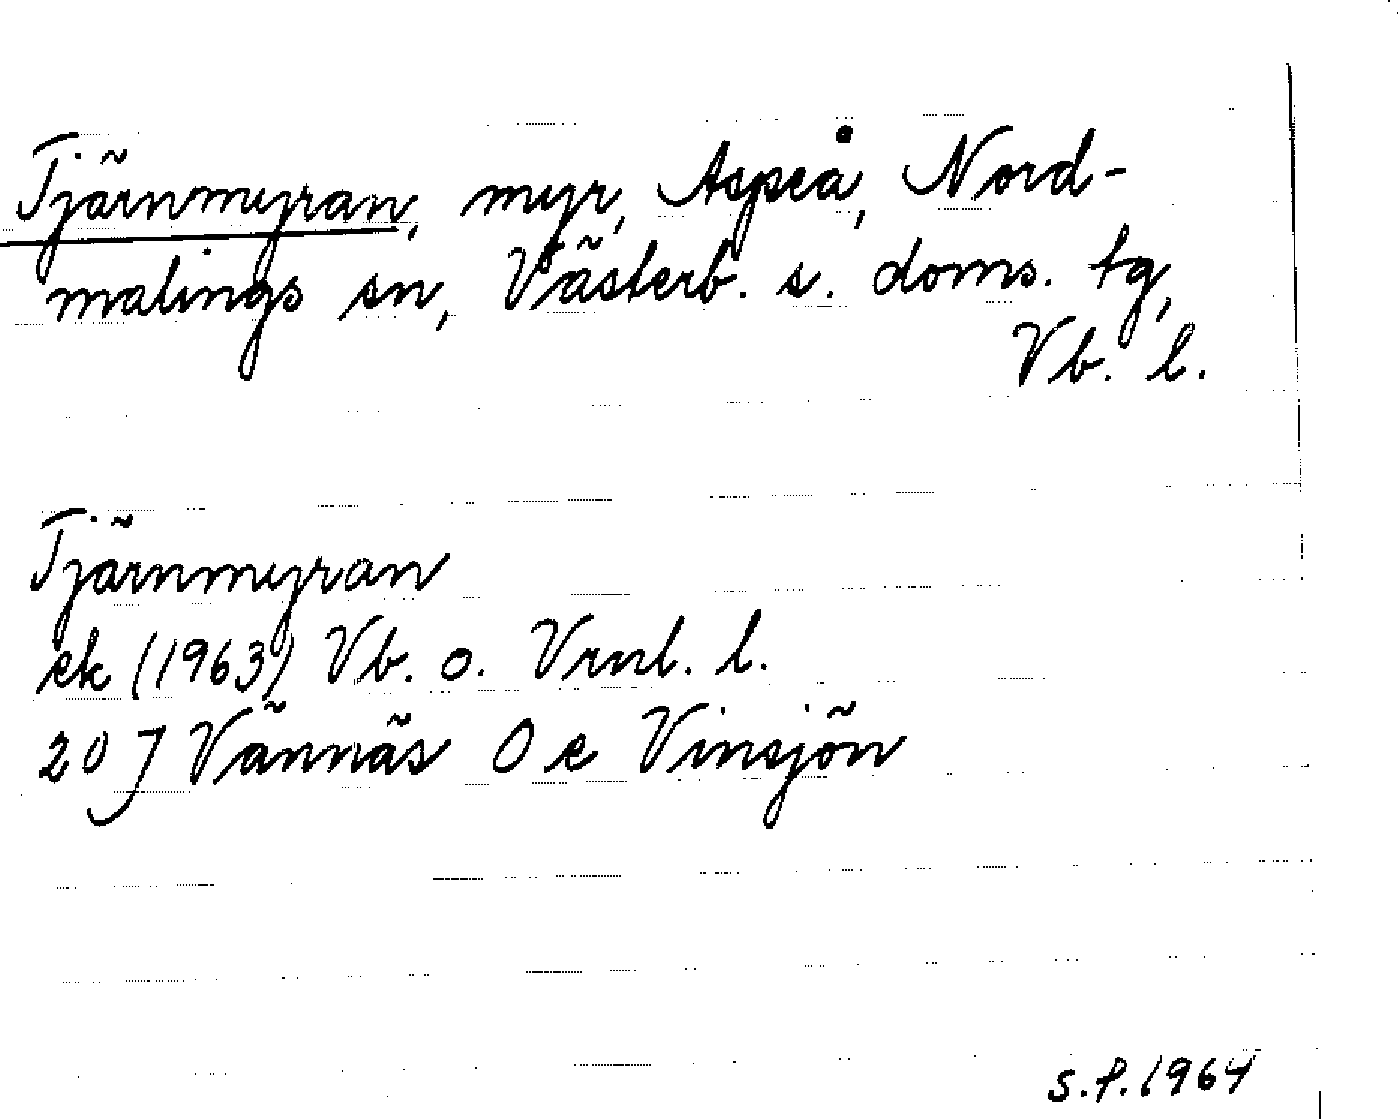 Tjärnmyran, myr, Aspeå, Nord-
malings sn, Västerb. s. doms. tg,
Vb. l.
Tjärnmyran
ek (1963) Vb. o. Vrml. l.
20 J Vännäs 0 e Vinsjön
S.P. 1964